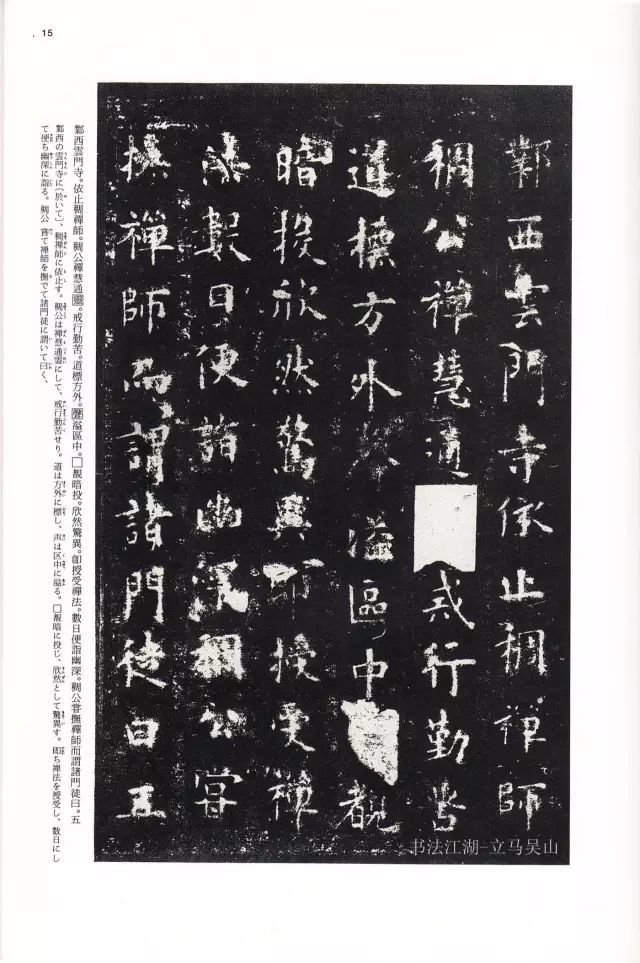 . 15
鄴西雲門寺依止稠禪師
稠公禪慧通戒行勤苦
道標方外聲溢區中覩
暗投欣然驚異即授受禪
法數日便詣幽深稠公嘗
撫禪師而謂諸門徒曰五
鄴西雲門寺。依止稠禪師。稠公禪慧通靈。戒行勤苦。道標方外。聲溢區中。□覩暗投。欣然驚異。卽授受禪法。數日便詣幽深。稠公嘗撫禪師而謂諸門徒曰。五
鄴西の雲門寺に(於いて)、稠禪師に依止す。稠公は禅慧通霊にして、戒行勤苦せり。道は方外に標し、声は区中に溢る。□覩暗に投じ、欣然として驚異す。即ち禅法を授受し、数日にし
て便ち幽深に詣る。稠公 嘗て禅師を撫でて諸門徒に謂いて曰く、
书法江湖-立马吴山